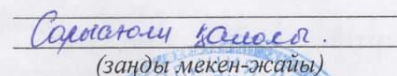 Сарыағаш қаласы.
(заңды мекен-жайы)